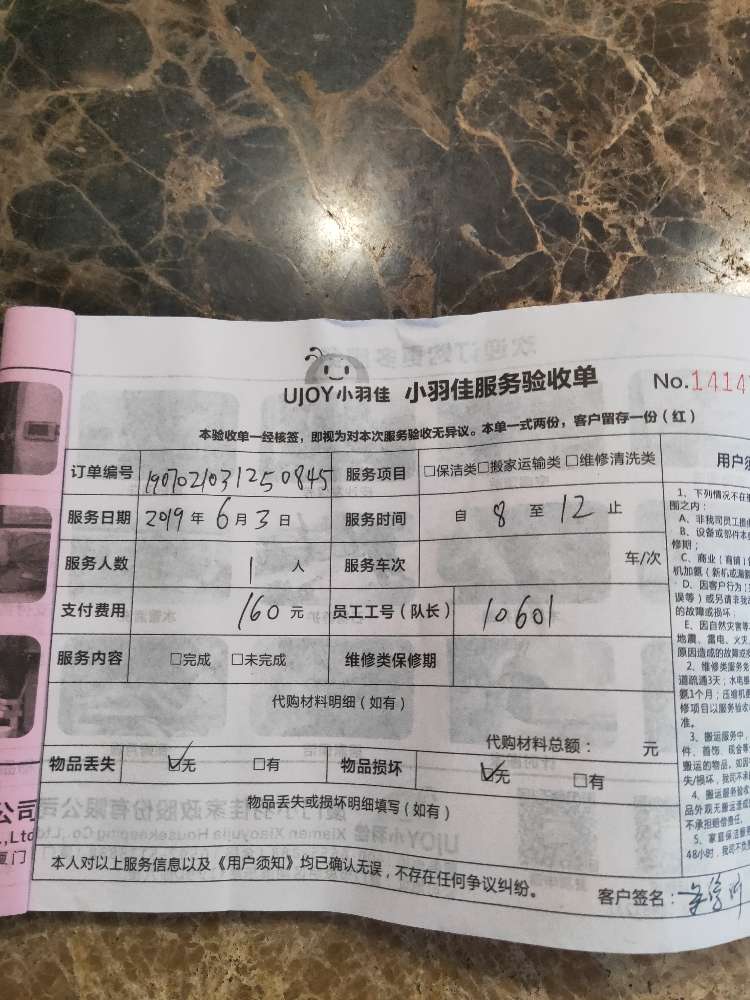 UJOY小羽佳 小羽佳服务验收单 No.1414
本验收单一经核签，即视为对本次服务验收无异议。本单一式两份，客户留存一份（红）
订单编号 190702103125084５ 服务项目 □保洁类□搬家运输类□维修清洗类
服务日期 2019年6月3日 服务时间 自8至12止
服务人数 1人 服务车次 车/次
支付费用 160元 员工工号（队长） 10601
服务内容 □完成 □未完成 维修类保修期
代购材料明细（如有）
代购材料总额： 元
物品丢失 ☑无 □有 物品损坏 ☑无 □有
物品丢失或损坏明细填写（如有）
本人对以上服务信息以及《用户须知》均已确认无误，不存在任何争议纠纷。
客户签名：
用户须
1、下列情况不在
围之内：
A、非我司员工
B、设备或部件本
修期；
C、商业（商铺）
机加氨（新机或漏
D、因客户行为
误等）或另请非我
的故障或损坏
E、因自然灾害等
地震、雷电、火灾
原因造成的故障或
2、维修类服务免
道疏通3天；水电
氨1个月；压缩机
修项目以服务验收
准。
3、搬运服务中，
件、首饰、现金等
搬运的物品，如因
失/损坏，我司不
4、搬运服务验收
品外观无搬运造成
不承担赔偿责任。
5、家庭保洁服务
48小时，我司不负
公司
.,Ltd
厦门